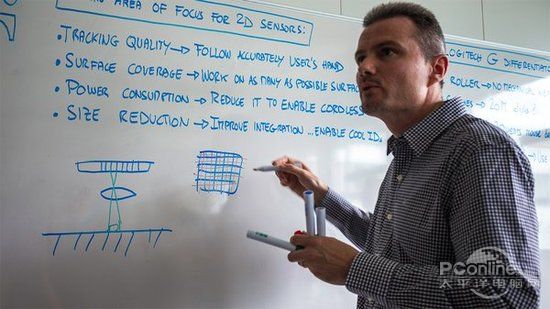 AREA OF FOCUS FOR 2D SENSORS:
• TRACKING QUALITY → FOLLOW ACCURATELY USER'S HAND
• SURFACE COVERAGE → WORK ON AS MANY AS POSSIBLE SURFA
• POWER CONSUMPTION → REDUCE IT TO ENABLE CORDLES
• SIZE REDUCTION → IMPROVE INTEGRATION ... ENABLE COOL ID
LOGITECH G DIFFERENTIA
ROLLER → NO
→ 20M
USE
PConline
太平洋电脑网